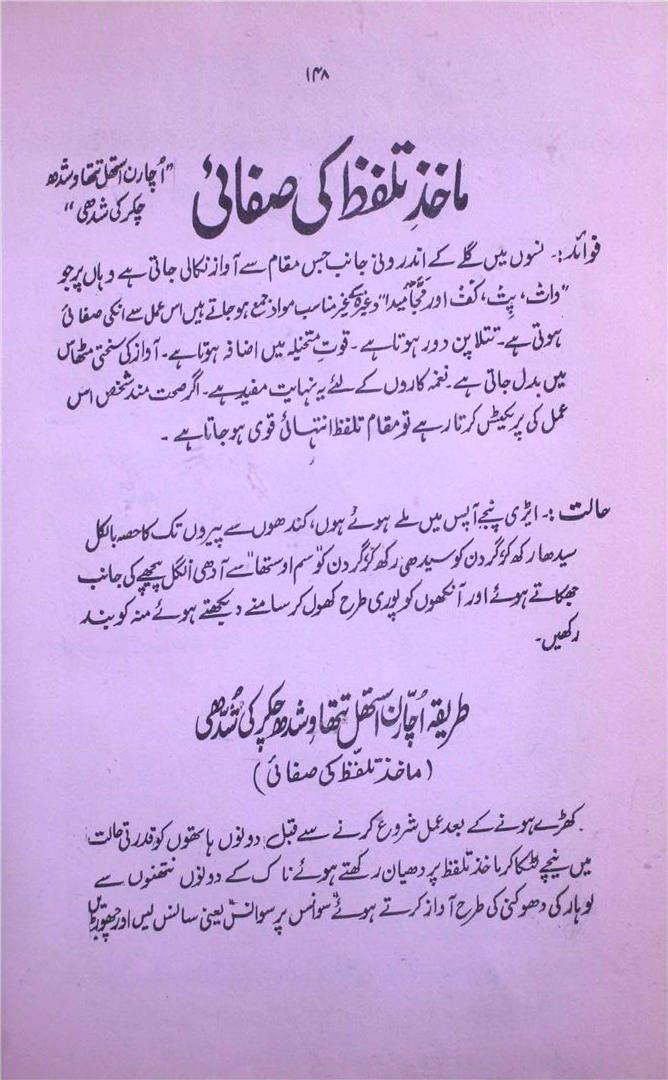 ۱۴۸
ماخذِ تلفظ کی صفائی
"اُچارن استھل تتھا وشدھ
چکر کی شدھی"
فوائد:۔ نسوں میں گلے کے اندرونی جانب جس مقام سے آواز نکالی جاتی ہے وہاں پر جو
"وات، پِت، کف اور مجّا میدا" وغیرہ کے غیر مناسب مواد جمع ہو جاتے ہیں اس عمل سے انکی صفائی
ہوتی ہے۔ تتلاپن دور ہوتا ہے۔ قوت متخیلہ میں اضافہ ہوتا ہے۔ آواز کی سختی مٹھاس
میں بدل جاتی ہے۔ نغمہ کاروں کے لئے یہ نہایت مفید ہے۔ اگر صحت مند شخص اس
عمل کی پریکٹس کرتا رہے تو مقام تلفظ انتہائی قوی ہو جاتا ہے۔
حالت:۔ ایڑی پنجے آپس میں ملے ہوئے ہوں، کندھوں سے پیروں تک کا حصہ بالکل
سیدھا رکھ کر گردن کو سیدھی رکھ کر گردن کو "سم اوستھا" سے آدھی انگل پیچھے کی جانب
جھکاتے ہوئے اور آنکھوں کو پوری طرح کھول کر سامنے دیکھتے ہوئے منہ کو بند
رکھیں۔
طریقہ اُچّارن استھل تتھا وشدھ چکر کی شُدّھی
(ماخذ تلفّظ کی صفائی)
کھڑے ہونے کے بعد عمل شروع کرنے سے قبل دونوں ہاتھوں کو قدرتی حالت
میں نیچے لٹکا کر ماخذ تلفظ پر دھیان رکھتے ہوئے ناک کے دونوں نتھنوں سے
لوہار کی دھوکنی کی طرح آواز کرتے ہوئے سوانس پر سوانس یعنی سانس لیں اور چھوڑیں